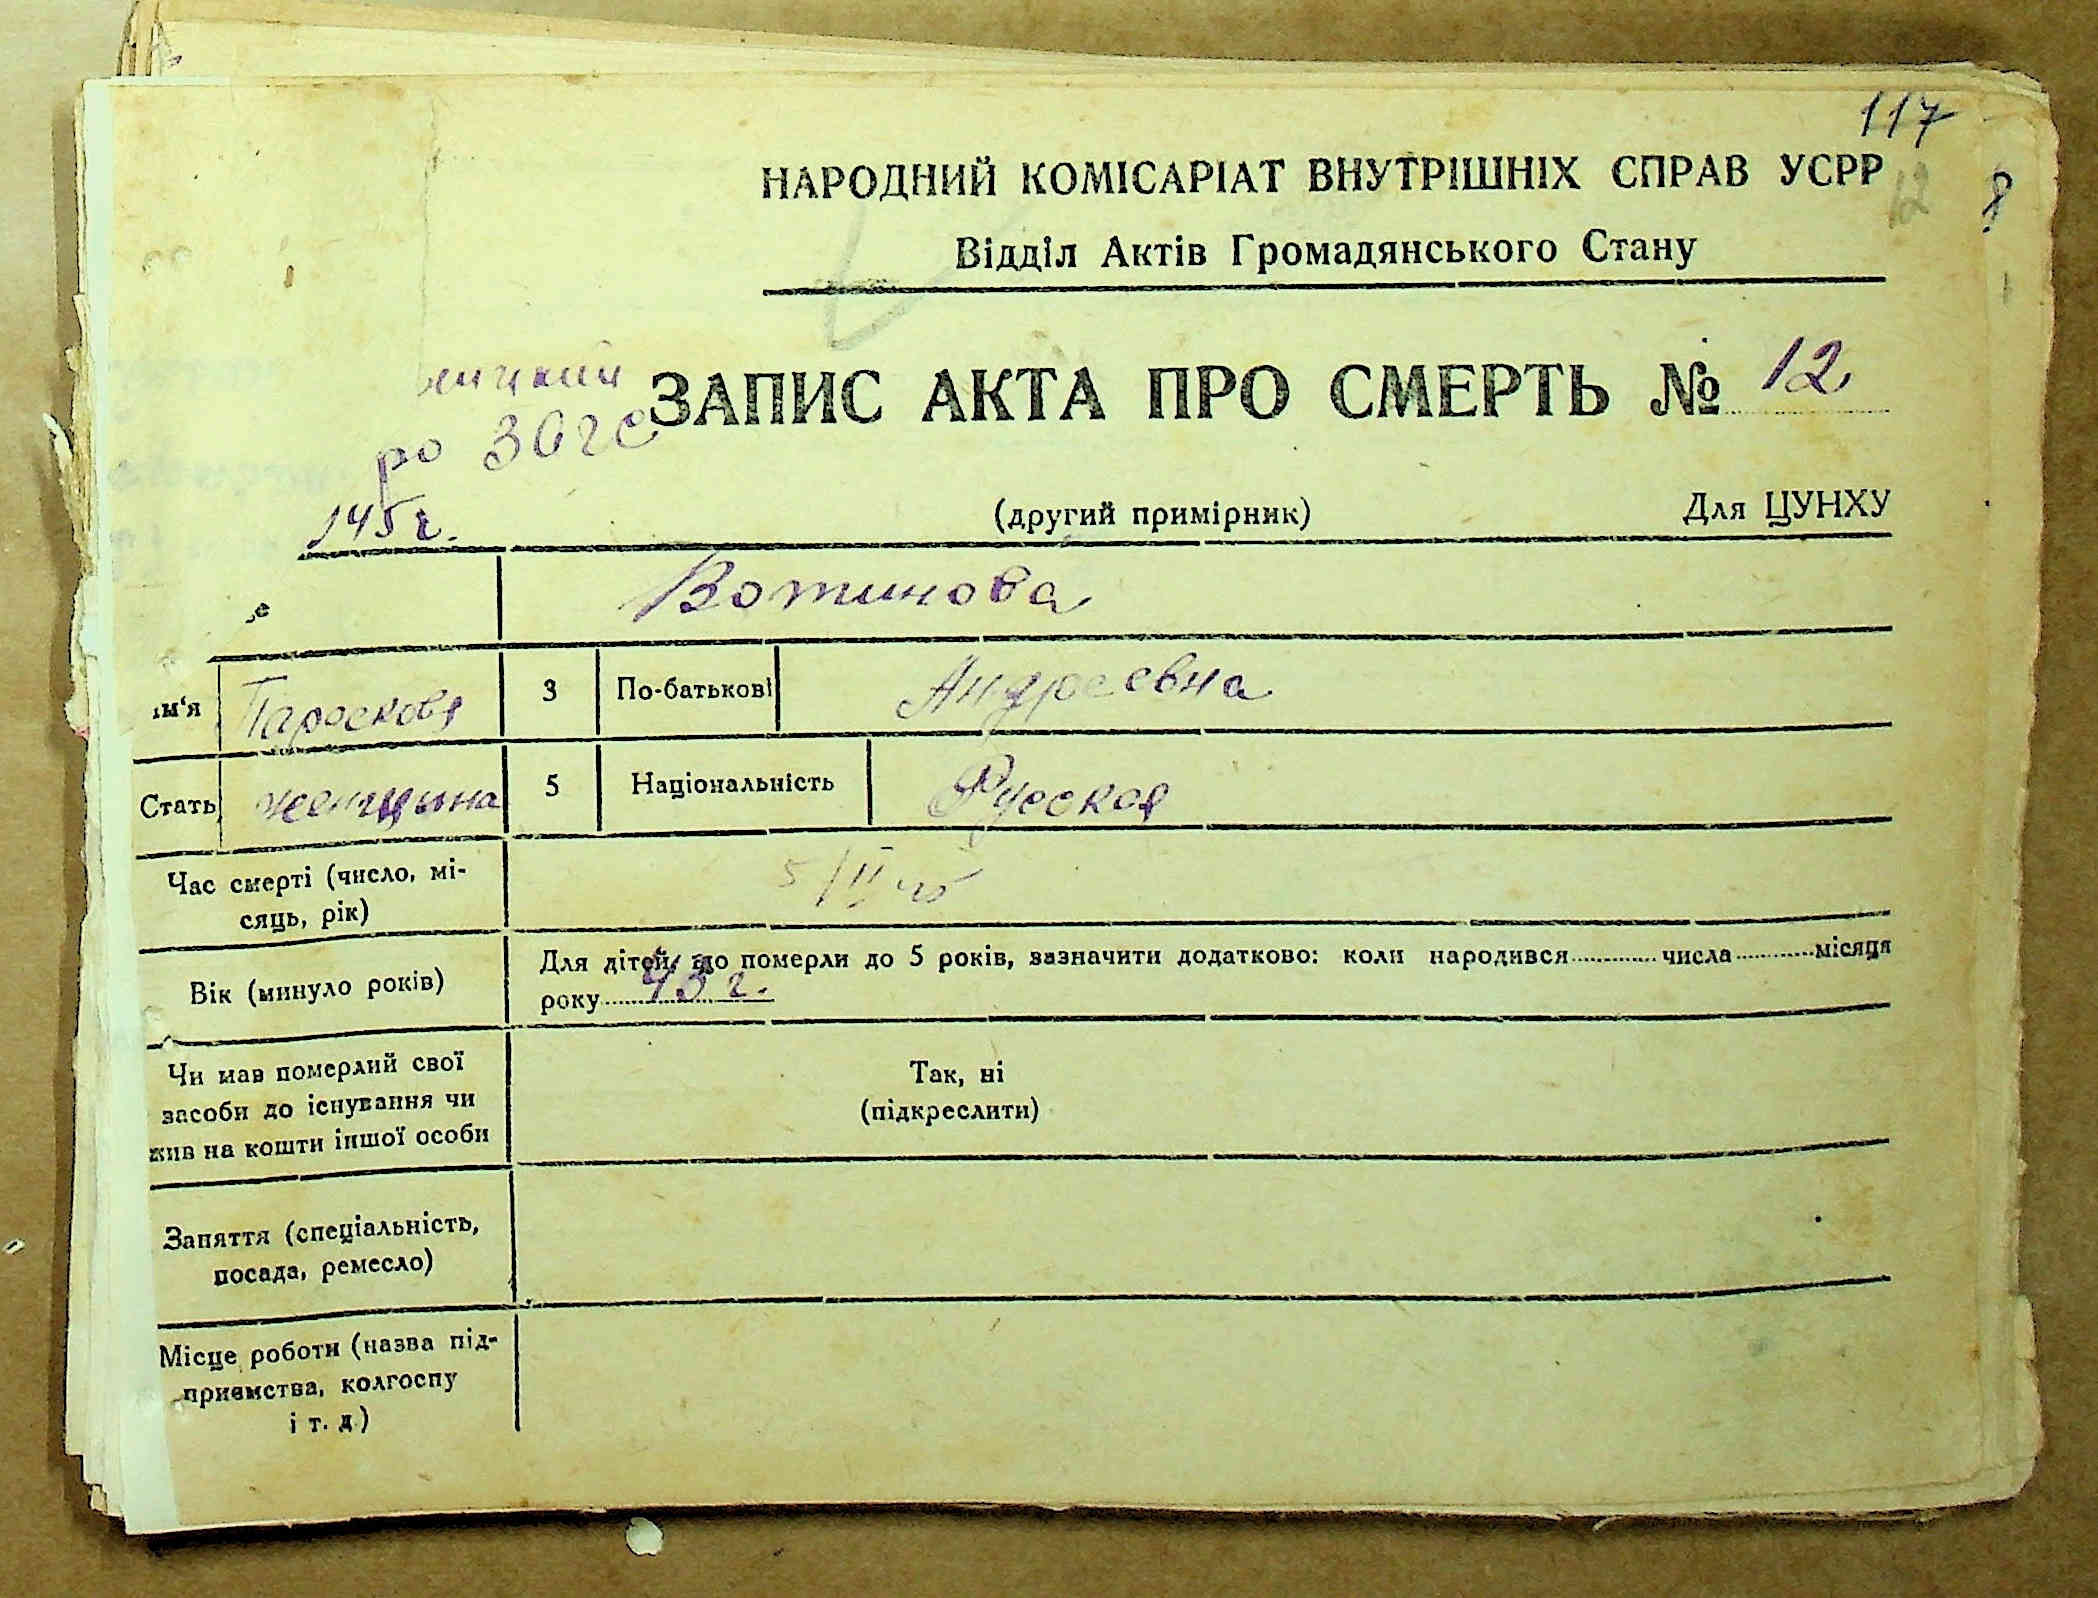 117
НАРОДНИЙ КОМІСАРІАТ ВНУТРІШНІХ СПРАВ УСРР
12 8
Відділ Актів Громадянського Стану
ЗАПИС АКТА ПРО СМЕРТЬ № 12
ро ЗАГС
145 г.
(другий примірник) Для ЦУНХУ
Вотинова
ім‘я Парасковя 3 По-батькові Андреевна
Стать женщина 5 Національність Русская
Час смерті (число, мі-
сяць, рік)
5/II 45
Вік (минуло років)
Для дітей, що померли до 5 років, зазначити додатково: коли народився ... числа ... місяця
року 43 г.
Чи мав померлий свої
засоби до існування чи
жив на кошти іншої особи
Так, ні
(підкреслити)
Заняття (спеціальність,
посада, ремесло)
Місце роботи (назва під-
приємства, колгоспу
і т. д.)